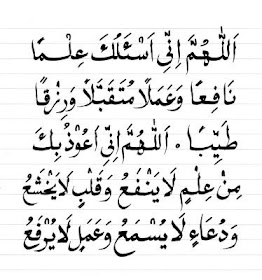 اَللّٰهُمَّ اِنِّي اَسْئَلُكَ عِلْمًا
نَافِعًا وَعَمَلًا مُتَقَبَّلًا وَرِزْقًا
طَيِّبًا . اَللّٰهُمَّ اِنِّي اَعُوْذُ بِكَ
مِنْ عِلْمٍ لَا يَنْفَعُ وَقَلْبٍ لَا يَخْشَعُ
وَدُعَاءٍ لَا يُسْمَعُ وَعَمَلٍ لَا يُرْفَعُ